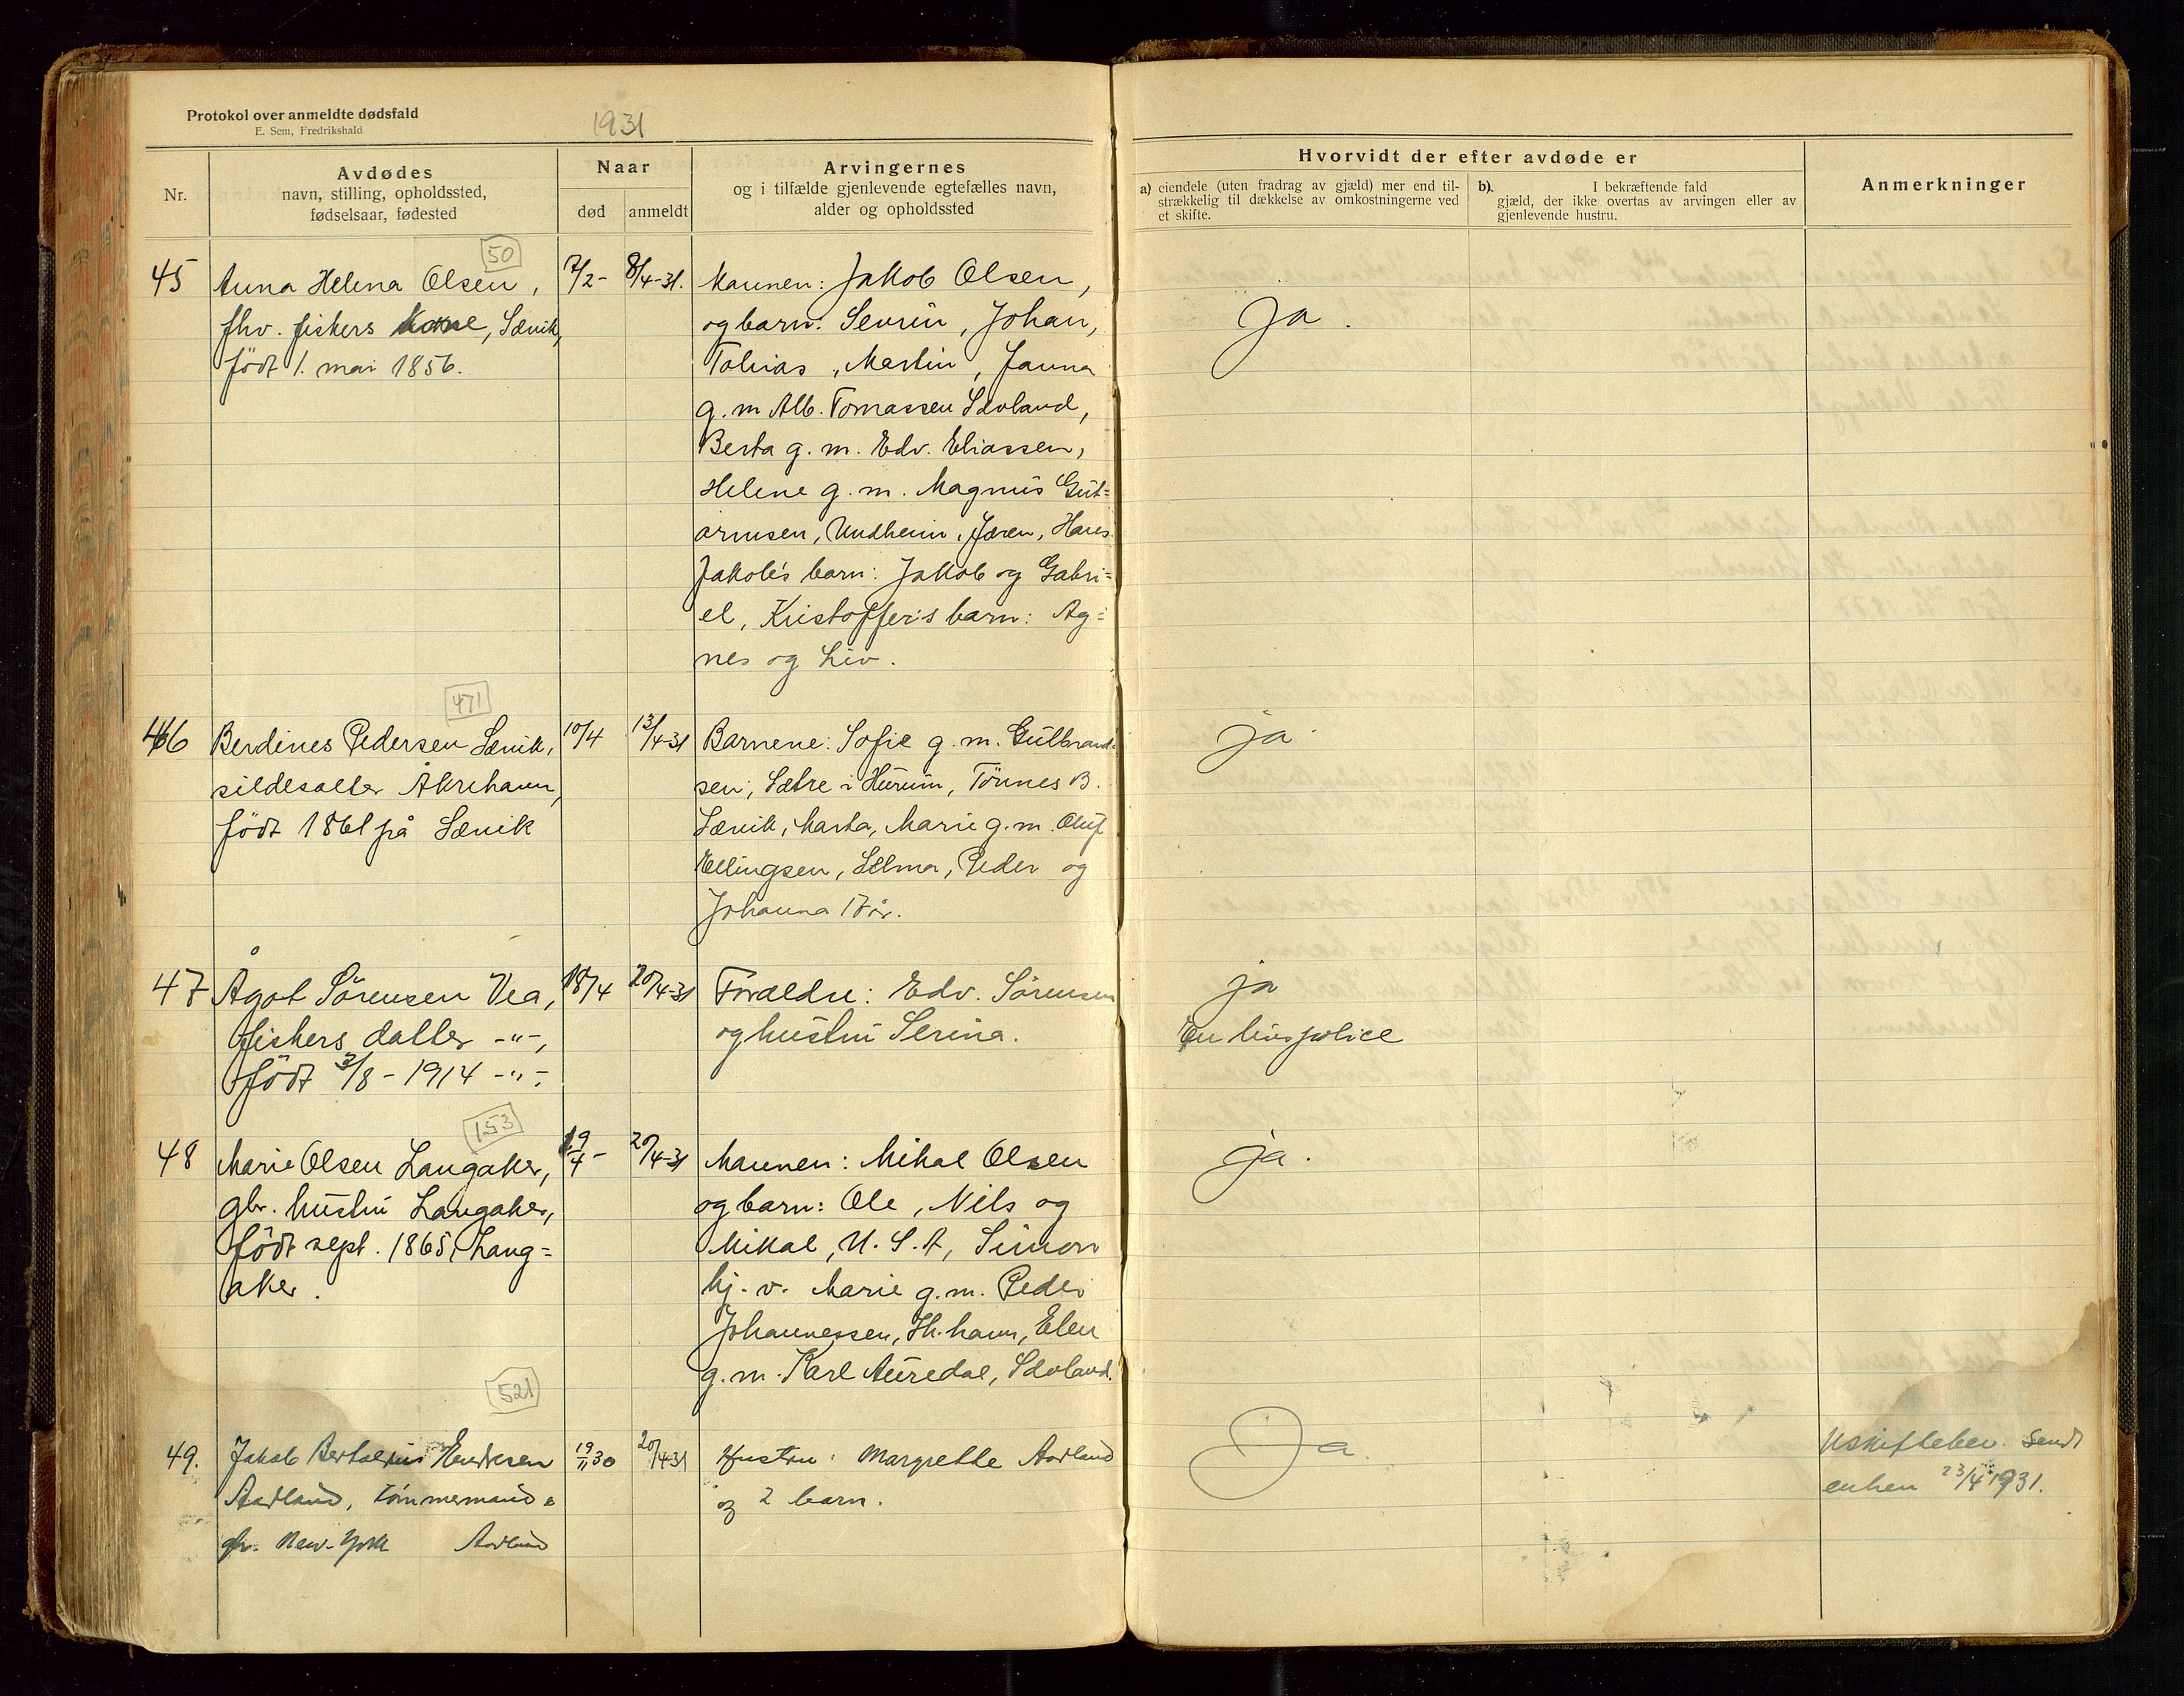 Protokol over anmeldte dødsfald
E. Sem, Fredrikshald
1931
Nr.
Avdødes
navn, stilling, opholdssted,
fødselsaar, fødested
Naar
død
anmeldt
Arvingernes
og i tilfælde gjenlevende egtefælles navn,
alder og opholdssted
Hvorvidt der efter avdøde er
a) eiendele (uten fradrag av gjæld) mer end til-
strækkelig til dækkelse av omkostningerne ved
et skifte.
b). I bekræftende fald
gjæld, der ikke overtas av arvingen eller av
gjenlevende hustru.
Anmerkninger
50
45
Anna Helena Olsen,
fhv. fiskers kone, Sævik,
født 1. mai 1856.
7/2-
8/4-31.
Mannen: Jakob Olsen,
og barn: Sevrin, Johan,
Tobias, Martin, Janna
g. m Alb. Tomassen Stoland,
Berta g. m. Edv. Eliassen,
Helene g. m. Magnus Gut=
ormsen, Undheim, Jæren, Hans
Jakob's barn: Jakob og Gabri=
el, Kristoffer's barn: Ag=
nes og Liv.
ja.
471
46
Berdines Pedersen Sævik,
sildesalter Åkrehavn,
født 1861 på Sævik
10/4
13/4-31
Barnene: Sofie g. m. Gulbrand-
sen, Sætre i Hurum, Tönnes B.
Sævik, Marta, Marie g. m. Oluf
Ellingsen, Selma, Peder og
Johanna 17 år.
ja
47
Ågot Sörensen Vea,
fiskers datter -"-,
født 3/8-1914 -"-.
18/4
20/4-31
Foreldre: Edv. Sörensen
og hustru Serina.
ja
En livspolice
153
48
Marie Olsen Langaker,
gbr. hustru Langaker,
født sept. 1865, Lang=
aker.
19/4-
20/4-31
Mannen: Mikal Olsen
og barn: Ole, Nils og
Mikal, U. S. A, Simon
hj. v. Marie g. m. Peder
Johannessen, Sk.havn, Elen
g. m. Karl Auredal, Stoland.
ja.
521
49.
Jakob Bertelsius Endresen
Aadland, tömmermand &
gbr. New-York Aadland
19/11 30
20/4-31
Hustru: Margrethe Aadland
og 2 barn.
Ja.
Uskiftebev. sendt
enken 23/4 1931.